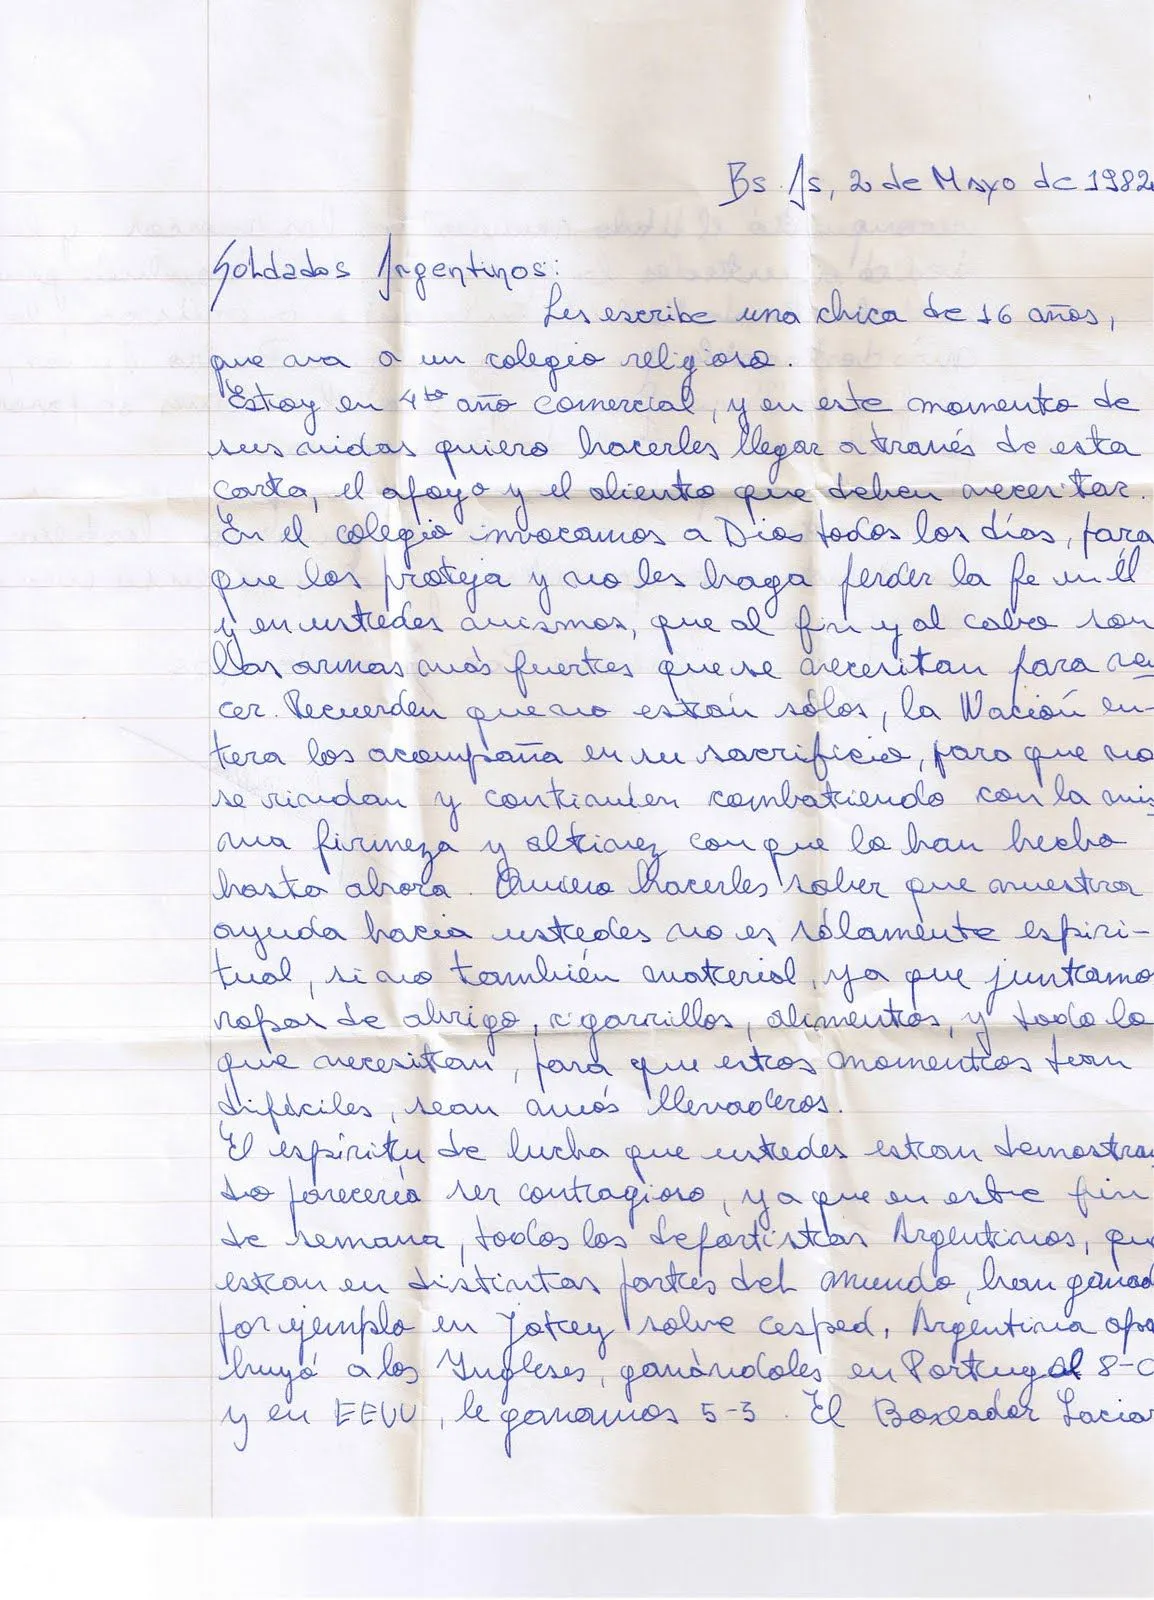 Bs. As, 2 de Mayo de 1982
Soldados Argentinos:
Les escribe una chica de 16 años,
que va a un colegio religioso.
Estoy en 4to año comercial, y en este momento de
sus vidas quiero hacerles llegar a través de esta
carta, el apoyo y el aliento que deben necesitar.
En el colegio invocamos a Dios todos los días, para
que los proteja y no les haga perder la fe en Él
y en ustedes mismos, que al fin y al cabo son
las armas más fuertes que se necesitan para ven
cer. Recuerden que no están sólos, la Nación en-
tera los acompaña en su sacrificio, para que no
se rindan y continúen combatiendo con la mis
ma firmeza y altivez con que lo han hecho
hasta ahora. Quiero hacerles saber que nuestra
ayuda hacia ustedes no es sólamente espiri-
tual, sino también material, ya que juntamo
ropas de abrigo, cigarrillos, alimentos, y todo lo
que necesitan, para que estos momentos tan
difíciles, sean más llevaderos.
El espíritu de lucha que ustedes estan demostran
do parecería ser contagioso, ya que en este fin
de semana, todos los deportistas Argentinos, qu
estan en distintas partes del mundo, han ganad
por ejemplo en Jokey sobre cesped, Argentina apa
buyó a los Ingleses, ganándoles en Portugal 8-0
y en EEUU, le ganamos 5-3. El Boxeador Lacia